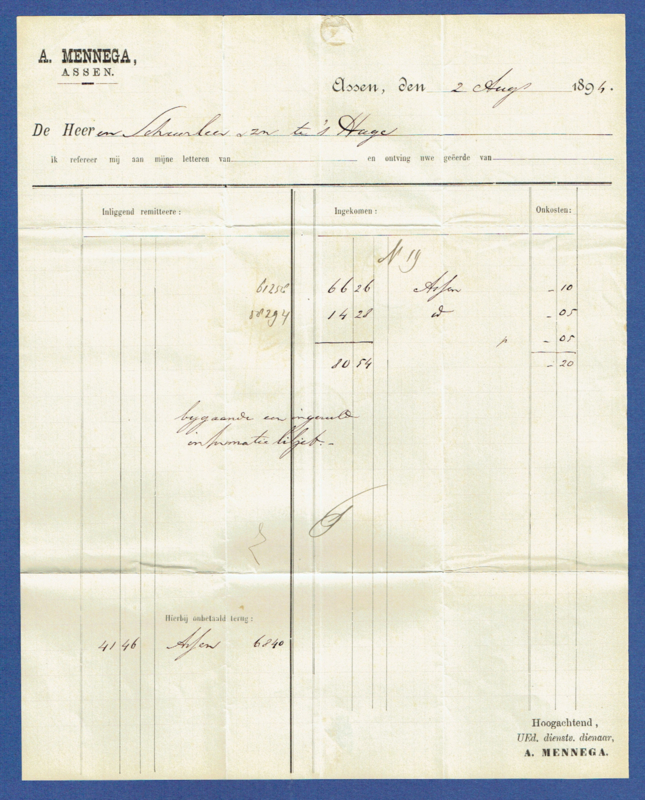 A. MENNEGA,
ASSEN.
Assen, den 2 Aug 1894.
De Heeren Scheurleer & Zn te 's Hage
ik refereer mij aan mijne letteren van en ontving uwe geëerde van
Inliggend remitteere: Ingekomen: Onkosten:
No 19
61256 66 26 Assen - 10
58294 14 28 d - 05
p - 05
80 54 - 20
bijgaande een ingevuld
informatie biljet.-
Hierbij onbetaald terug:
41 46 Assen 6840
Hoogachtend,
UEd. dienstw. dienaar,
A. MENNEGA.